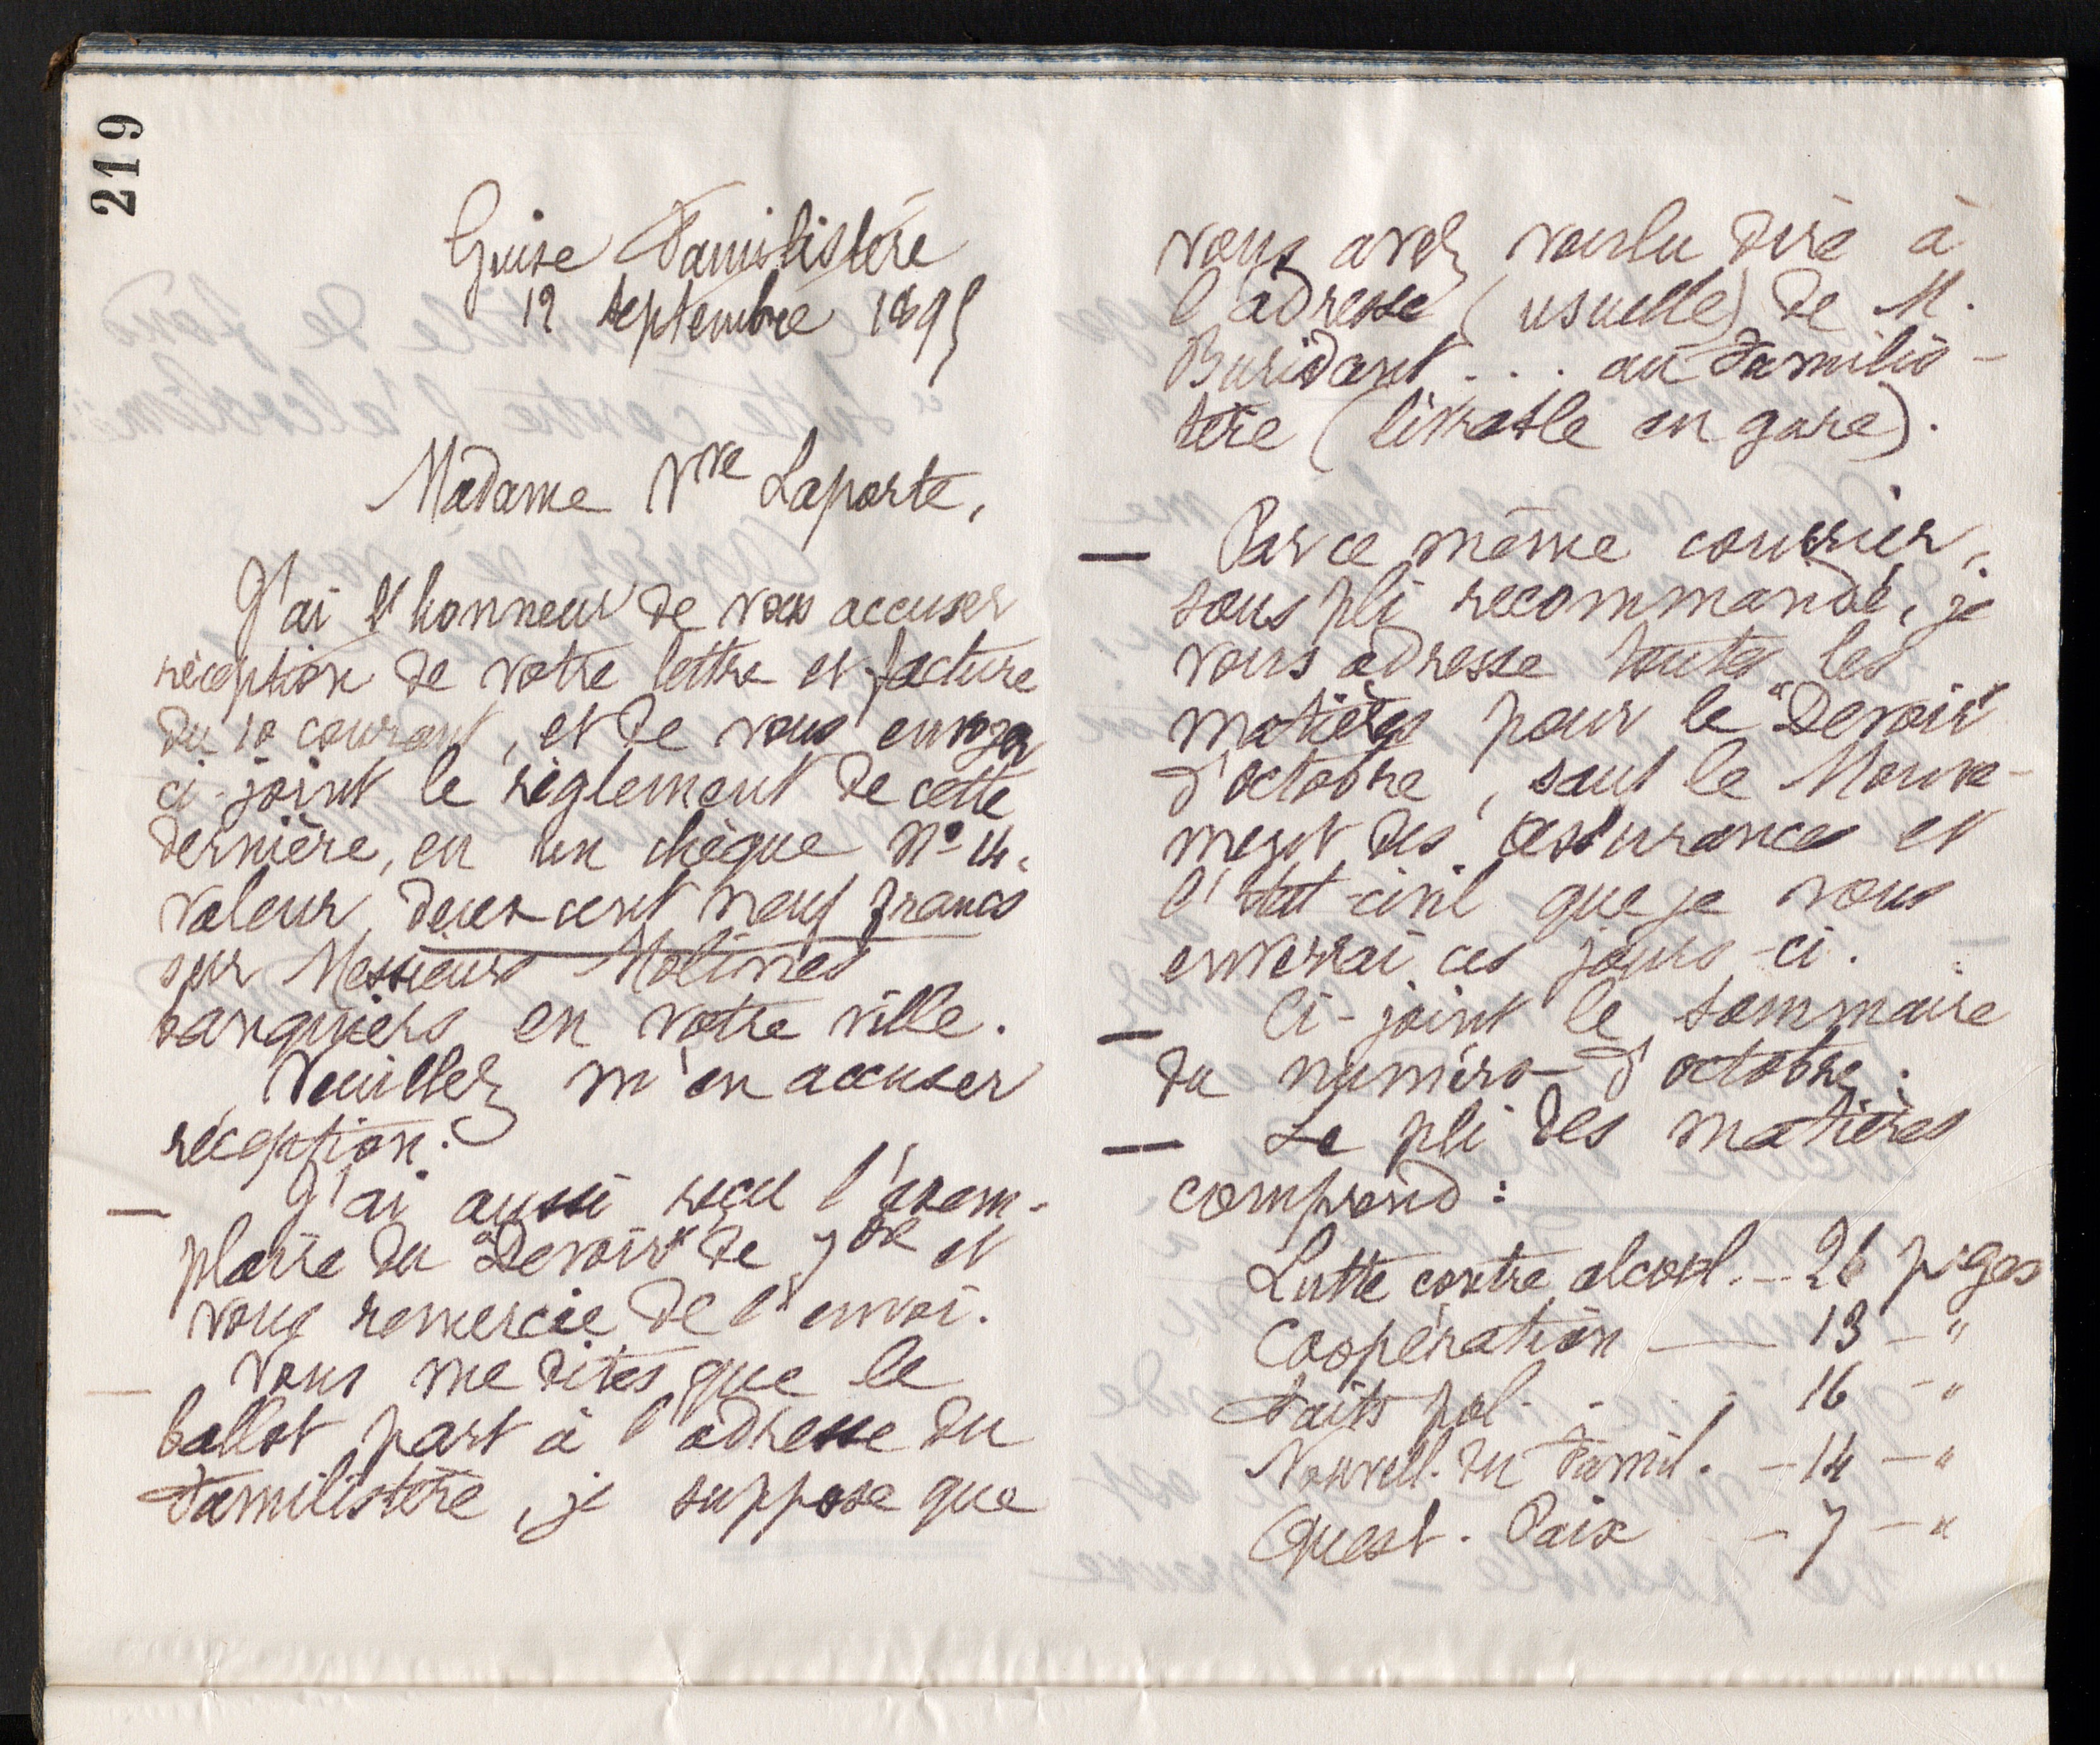 219
Guise Familistère
12 septembre 1895
Madame Vve Laporte,
J'ai l'honneur de vous accuser
réception de votre lettre et facture
du 10 courant, et de vous envoyer
ci-joint le règlement de cette
dernière, en un chèque No 14,
valeur deux cent neuf francs
sur Messieurs Molines
banquiers en votre ville.
Veuillez m'en accuser
réception.
— J'ai aussi reçu l'exem-
plaire du "Devoir" de 7bre et
vous remercie de l'envoi.
— Vous me dites que le
ballot part à l'adresse du
Familistère, je suppose que
vous avez voulu dire à
l'adresse (usuelle) de M.
Buridant . . . au Familis-
tère (livrable en gare).
— Par ce même courrier,
sous pli recommandé, je
vous adresse toutes les
matières pour le "Devoir"
d'octobre, sauf le Mouve-
ment des assurances et
l'état-civil que je vous
enverrai ces jours-ci.
— Ci-joint le sommaire
du numéro d'octobre.
— Le pli des matières
comprend :
Lutte contre alcool. — 26 pages
Coopération — 13 — "
Faits pol. . . . 16 — "
Nouvell. du Famil. — 14 — "
Quest. Paix — 7 — "